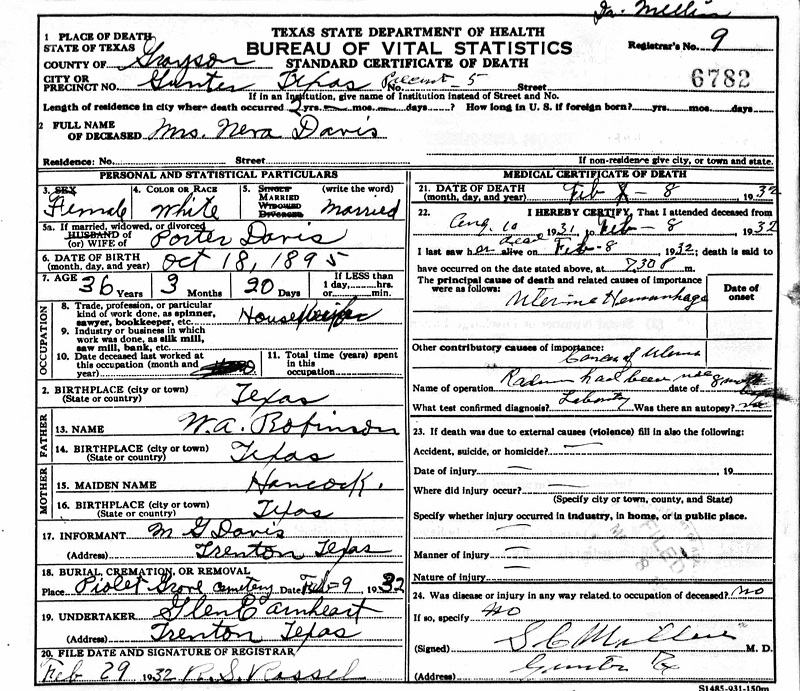 Dr. Millin
1 PLACE OF DEATH
STATE OF TEXAS
COUNTY OF Grayson
CITY OR
PRECINCT NO. Gunter Texas No. Precinct-5 Street
TEXAS STATE DEPARTMENT OF HEALTH
BUREAU OF VITAL STATISTICS
STANDARD CERTIFICATE OF DEATH
Registrar's No. 9
6782
If in an Institution, give name of Institution instead of Street and No.
Length of residence in city where death occurred 2 yrs. mos. days? How long in U. S. if foreign born? yrs. mos. days
2 FULL NAME
OF DECEASED Mrs. Neva Davis
Residence: No. Street If non-residence give city, or town and state.
PERSONAL AND STATISTICAL PARTICULARS
3. SEX Female
4. COLOR OR RACE White
5. SINGLE MARRIED WIDOWED DIVORCED (write the word) Married
5a. If married, widowed, or divorced
HUSBAND of
(or) WIFE of Porter Davis
6. DATE OF BIRTH
(month, day, and year) Oct 18, 1895
7. AGE 36 Years 3 Months 20 Days If LESS than 1 day, hrs. or min.
OCCUPATION
8. Trade, profession, or particular
kind of work done, as spinner,
sawyer, bookkeeper, etc. Housekeeper
9. Industry or business in which
work was done, as silk mill,
saw mill, bank, etc.
10. Date deceased last worked at
this occupation (month and
year)
11. Total time (years) spent
in this
occupation
2. BIRTHPLACE (city or town)
(State or country) Texas
FATHER
13. NAME W.A. Robinson
14. BIRTHPLACE (city or town)
(State or country) Texas
MOTHER
15. MAIDEN NAME Hancock.
16. BIRTHPLACE (city or town)
(State or country) Texas
17. INFORMANT M G Davis
(Address) Trenton Texas
18. BURIAL, CREMATION, OR REMOVAL
Place Grove Cemetary Date Feb-9 1932
19. UNDERTAKER Glen Earnheart
(Address) Trenton Texas
20. FILE DATE AND SIGNATURE OF REGISTRAR
Feb 29 1932 R. S. Rassel
MEDICAL CERTIFICATE OF DEATH
21. DATE OF DEATH
(month, day, and year) Feb - 8 1932
22. I HEREBY CERTIFY, That I attended deceased from
Aug. 10 1931, to Feb - 8, 1932
I last saw her alive on Feb-8 1932; death is said to
dead
have occurred on the date stated above, at 730P m.
The principal cause of death and related causes of importance
were as follows: Date of
onset
Uterine Hemorrhage
Other contributory causes of importance:
Cancer of Uterus
Radium had been used
Name of operation date of
What test confirmed diagnosis? Was there an autopsy? no
23. If death was due to external causes (violence) fill in also the following:
Accident, suicide, or homicide?
Date of injury 19
Where did injury occur?
(Specify city or town, county, and State)
Specify whether injury occurred in industry, in home, or in public place.
FILED
Manner of injury
Nature of injury
24. Was disease or injury in any way related to occupation of deceased? no
If so, specify no
(Signed) M. D.
(Address) Gunter Tx
S1485-931-150m